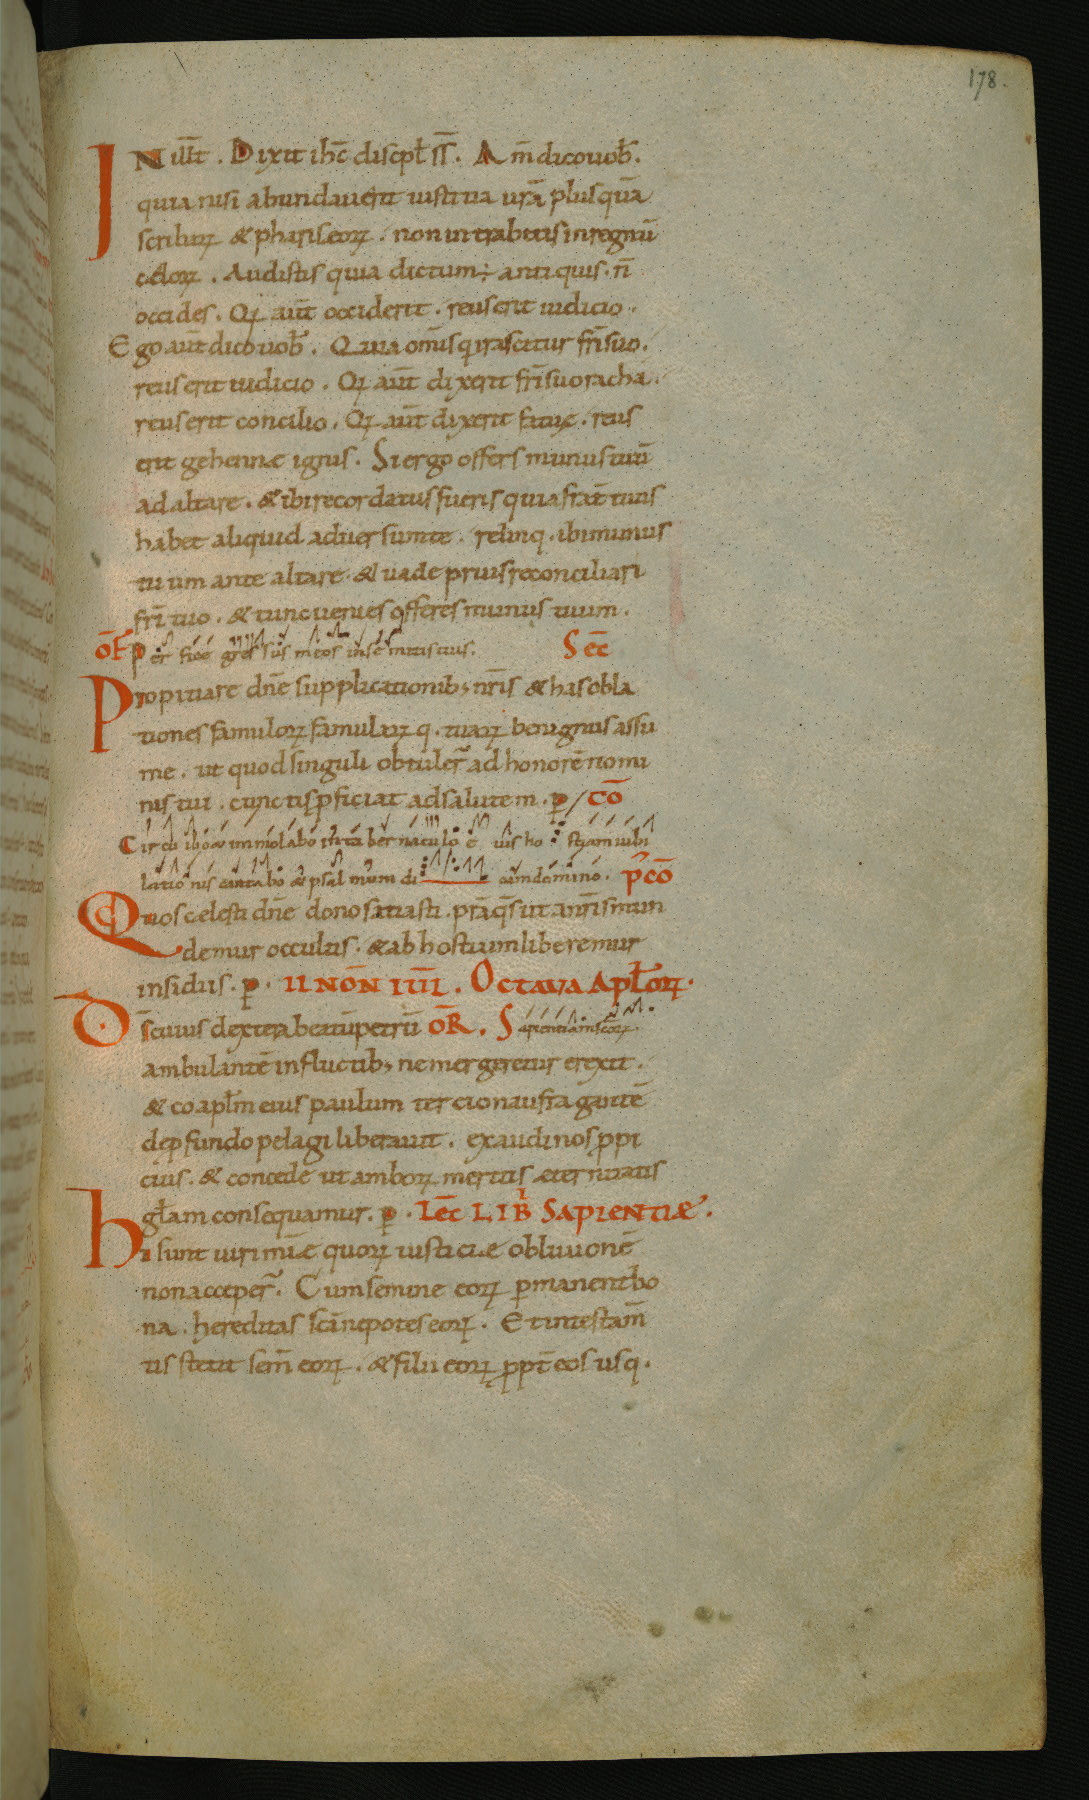 178.
IN illt̄. Dixit ihc̄ discipl̄ ss̄. Am̄ dico uob̄.
quia nisi abundauerit iustitia ur̄a plus quā
scribarꝝ & phariseorꝝ. non intrabitis in regnū
celorꝝ. Audistis quia dictum ÷ antiquis. n̄
occides. Qꝫ aut̄ occiderit. reus erit iudicio.
Ego aut̄ dico uob̄. Quia om̄is q irascitur fr̄i suo.
reus erit iudicio. Qꝫ aut̄ dixerit fr̄i suo racha.
reus erit concilio. Qꝫ aut̄ dixerit fatue. reus
erit gehennæ ignis. Si ergo offers munus tuū
ad altare. & ibi recordatus fueris quia frat̄ tuus
habet aliquid aduersum te. relinq. ibi munus
tuum ante altare. & uade prius reconciliari
fr̄i tuo. & tunc ueniens offeres munus tuum.
OF̄ Per fice gres sus meos in se mitis tuis. Sec̄
Propitiare dn̄e supplicationibꝫ nr̄is & has obla
tiones famulorꝝ famularꝝ q. tuarꝝ benignus assu
me. ut quod singuli obtuler̄ ad honorē nomi
nis tui. cunctis ꝓficiat ad salutem. ꝑ / CŌ
Circu ibo & immolabo in ta ber naculo e ius ho stiam iubi
latio nis cantabo & psal mum di cam domino. P̄CŌ
Quos celesti dn̄e dono satiasti. pr̄a q̄s ut a nr̄is mun
demur occultis. & ab hostium liberemur
insidiis. ꝑ. II NŌN IUL̄. OCTAVA APL̄ORꝝ.
Ds̄ cuius dextera beatū petrū OR̄. Sapientiam scōrꝝ
ambulantē in fluctibꝫ ne mergeretur erexit.
& coapl̄m eius paulum tercio naufragantē
de ꝓfundo pelagi liberauit. exaudi nos ꝓpi
cius. & concede ut amborꝝ meritis æternitatis
gl̄am consequamur. ꝑ. LEC̄ LIB̄ SAPIENTIÆ.
Hi sunt uiri miæ quorꝝ iusticiæ obliuionē
non acceper̄. Cum semine eorꝝ ꝑmanent bo
na. hereditas scā nepotes eorꝝ. Et in testam̄
tis stetit sem̄ eorꝝ. & filii eorꝝ ꝓpt̄ eos usq.